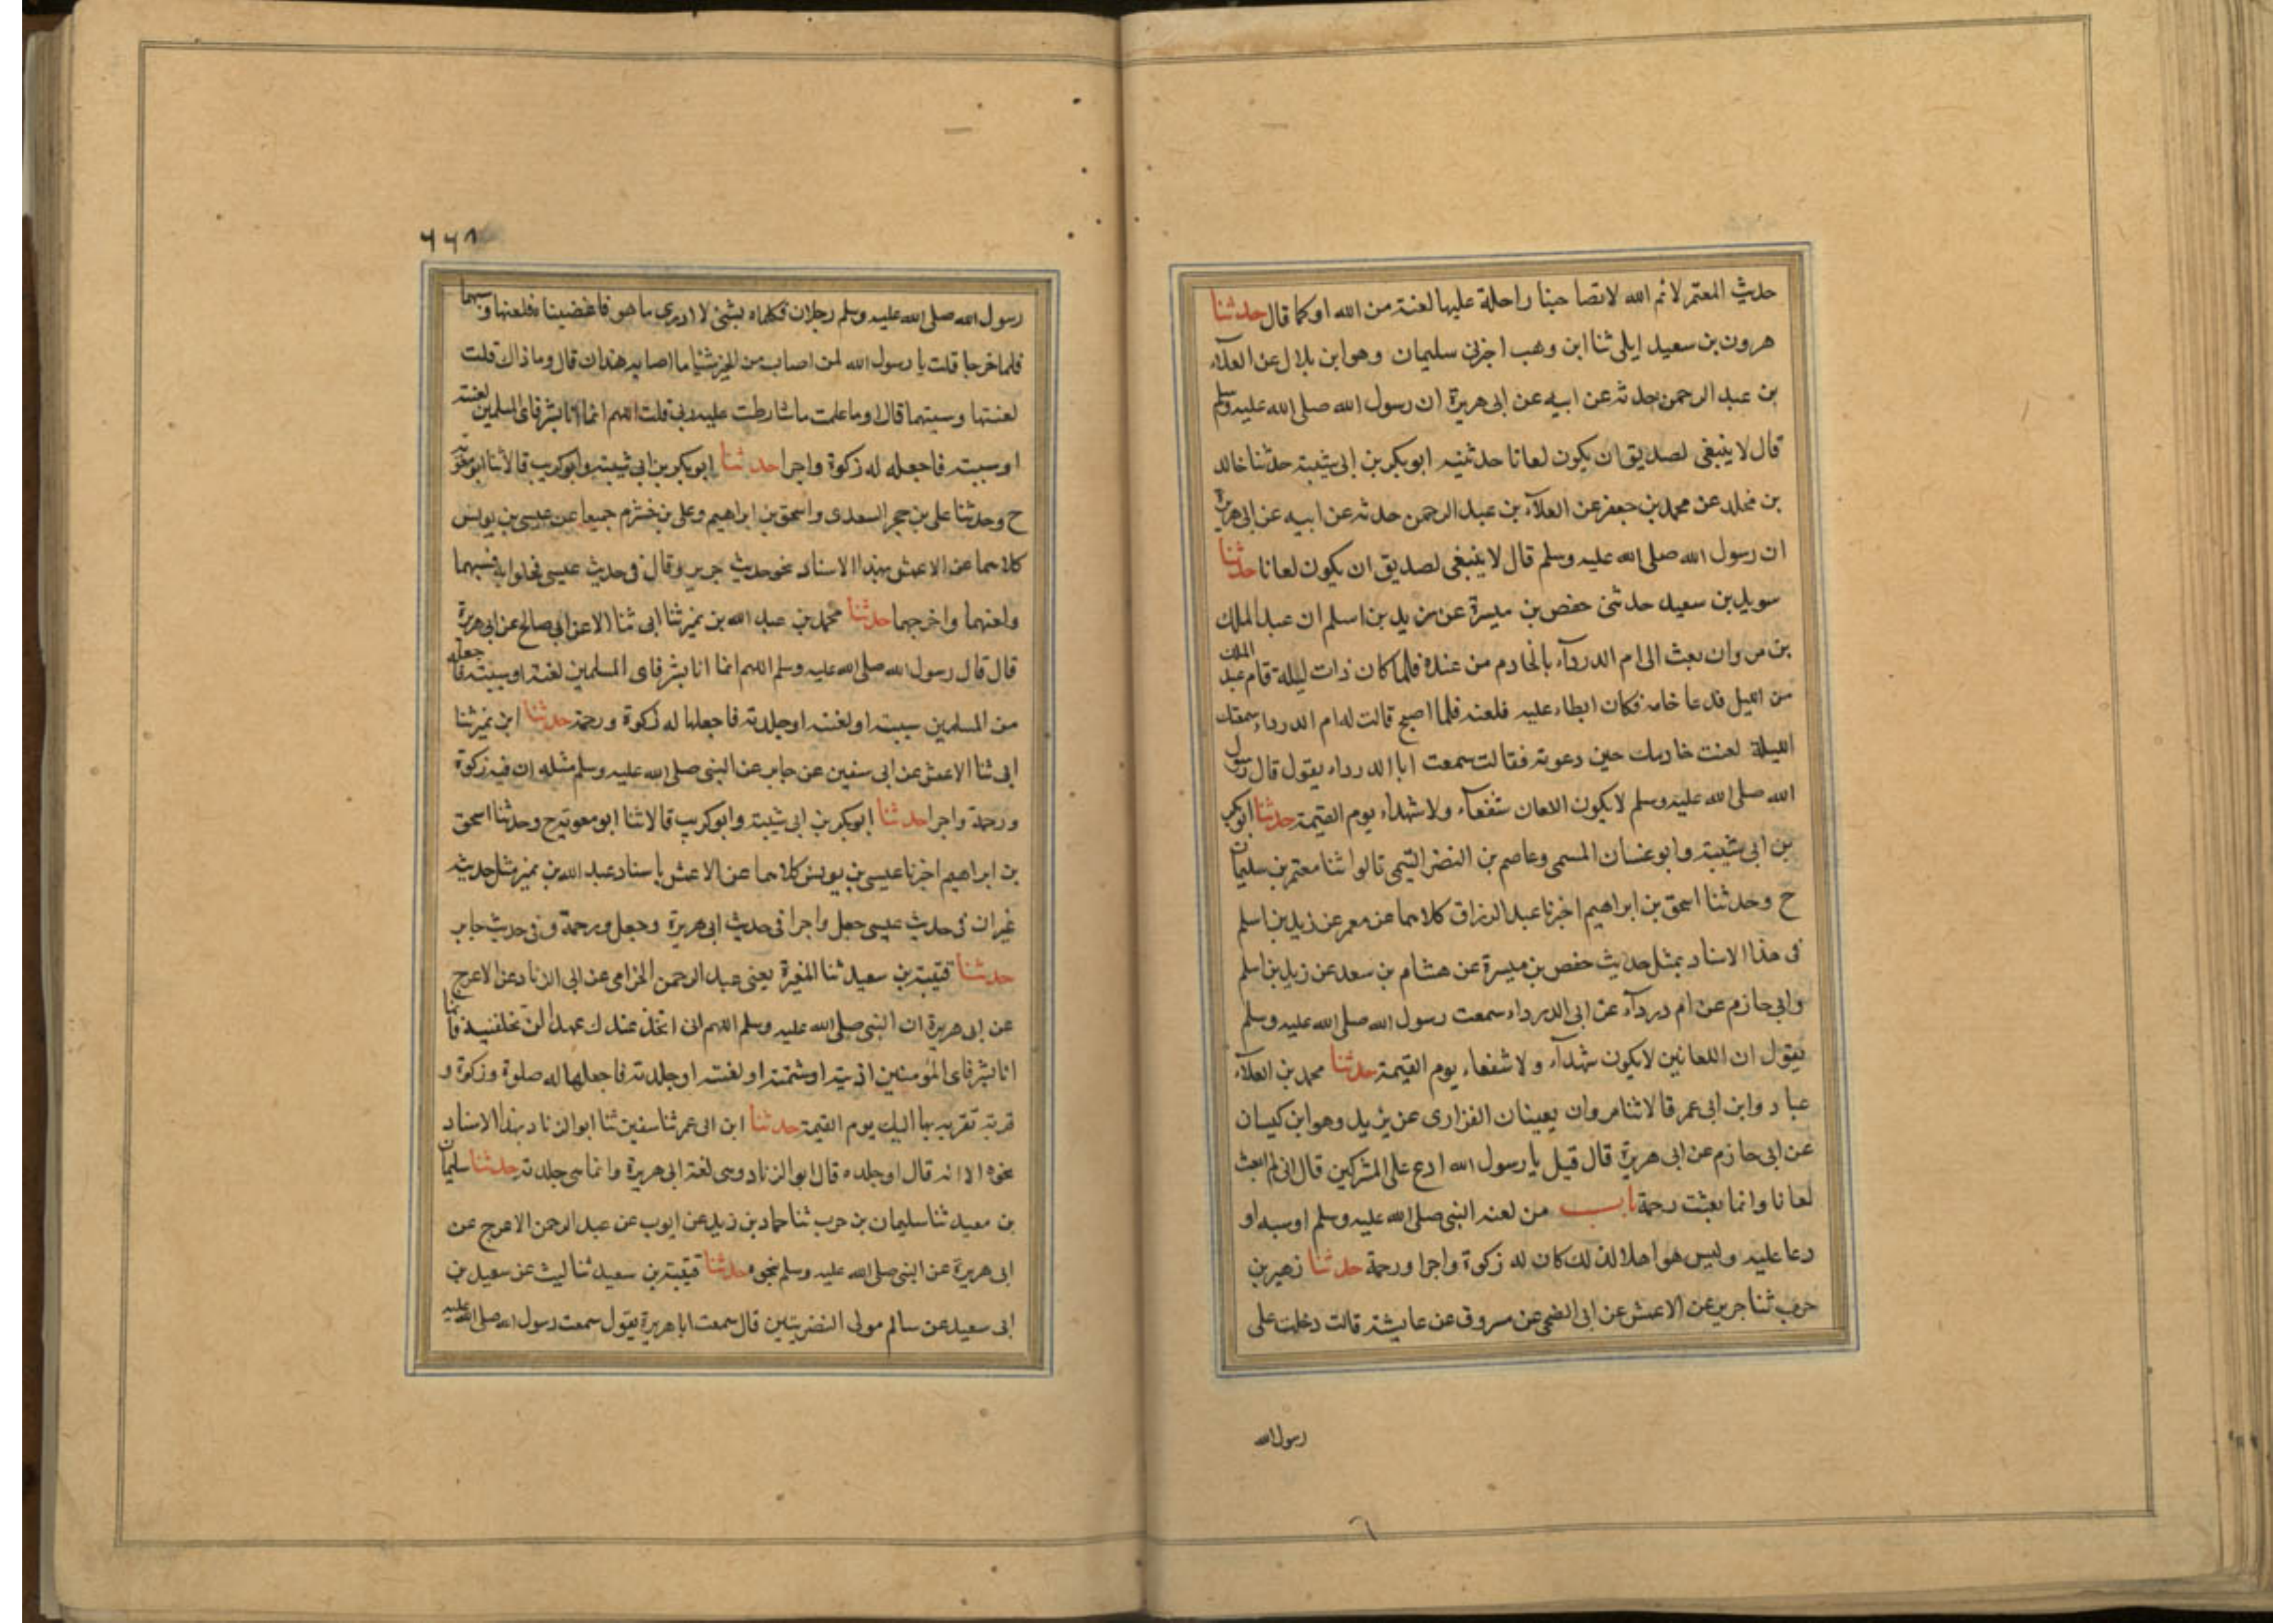 حدث المعتمر لا نم الله لا تصاحبنا راحلة عليها لعنة من الله او كما قال حدثنا
هرون بن سعيد ايلى ثنا ابن وهب اخبرنى سليمان وهو ابن بلال عن العلاء
بن عبد الرحمن حدثه عن ابيه عن ابى هريرة ان رسول الله صلى الله عليه وسلم
قال لا ينبغى لصديق ان يكون لعانا حدثنيه ابو بكر بن ابى شيبة حدثنا خالد
بن مخلد عن محمد بن جعفر عن العلاء بن عبد الرحمن حدثه عن ابيه عن ابى هريرة
ان رسول الله صلى الله عليه وسلم قال لا ينبغى لصديق ان يكون لعانا حدثنا
سويد بن سعيد حدثنى حفص بن ميسرة عن زيد بن اسلم ان عبد الملك
بن مروان بعث الى ام الدرداء بالخادم من عنده فلما كان ذات ليلة قام عبد الملك
من الليل فدعا خامه فكان ابطاء عليه فلعنه فلما اصبح قالت له ام الدرداء سمعتك
الليلة لعنت خادمك حين دعوته فقالت سمعت ابا الدرداء يقول قال رسول
الله صلى الله عليه وسلم لا يكون اللعان شفعاء ولا شهداء يوم القيمة حدثنا ابو بكر
بن ابى شيبة وابو غسان المسمى وعاصم بن النضر التيمى قالوا ثنا معتمر بن سليمان
ح وحدثنا اسحق بن ابراهيم اخبرنا عبد الرزاق كلاهما عن معمر عن زيد بن اسلم
فى هذا الاسناد بمثل حديث حفص بن ميسرة عن هشام بن سعد عن زيد بن اسلم
وابى حازم عن ام درداء عن ابى الدرداء سمعت رسول الله صلى الله عليه وسلم
يقول ان اللعانين لا يكون شهداء ولا شفعاء يوم القيمة حدثنا محمد بن العلاء
عباد وابن ابى عمر قالا ثنا مروان يعينان الفزارى عن يزيد وهو ابن كيسان
عن ابى حازم عن ابى هريرة قال قيل يا رسول الله ادع على المشركين قال انى لم ابعث
لعانا وانما بعثت رحمة باب من لعنه النبى صلى الله عليه وسلم او سبه او
دعا عليه وليس هو اهلا لذلك كان له زكوة واجرا ورحمة حدثنا زهير بن
حرب ثنا جرير عن الاعمش عن ابى الضحى عن مسروق عن عايشة قالت دخلت على
رسول الله
٦٦٨
رسول الله صلى الله عليه وسلم رجلان فكلماه بشئ لا ادرى ما هو فاغضبناه فلعنها وسبهما
فلما خرجا قلت يا رسول الله لمن اصاب من الخير شيا ما اصابه هذان قال وما ذاك قلت
لعنتها وسبيتهما قال او ما علمت ما شارطت عليه ربى قلت اللهم انما انا بشر فاى المسلمين لعنته
او سببته فاجعله له زكوة واجرا حدثنا ابو بكر بن ابى شيبة وابو كريب قالا ثنا ابو معوية
ح وحدثنا على بن حجر السعدى واسحق بن ابراهيم وعلى بن خشرم جميعا عن عيسى بن يونس
كلاهما عن الاعمش بهذا الاسناد نحو حديث جرير وقال فى حديث عيسى فخلوا به فسبهما
ولعنهما واخرجهما حدثنا محمد بن عبد الله بن نمير ثنا ابى ثنا الاعن ابى صالح عن ابى هريرة
قال قال رسول الله صلى الله عليه وسلم اللهم انما انا بشر فاى المسلمين لعنة او سببته فاجعله
من المسلمين سببته او لعنته او جلدته فاجعلها له زكوة ورحمة حدثنا ابن نمير ثنا
ابى ثنا الاعمش عن ابى سفين عن جابر عن النبى صلى الله عليه وسلم مثله ان فيه زكوة
ورحمة واجرا حدثنا ابو بكر بن ابى شيبة وابو كريب قالا ثنا ابو معوية ح وحدثنا اسحق
بن ابراهيم اخبرنا عيسى بن يونس كلاهما عن الاعمش باسناد عبد الله بن نمير مثل حديثه
غير ان فى حديث عيسى جعل واجرا فى حديث ابى هريرة وجعل ورحمة فى حديث جابر
حدثنا قتيبة بن سعيد ثنا المغيرة يعنى عبد الرحمن الحزامى عن ابى الزناد عن الاعرج
عن ابى هريرة ان النبى صلى الله عليه وسلم اللهم انى اتخذ عندك عهدا لن تخلفنيه فانما
انا بشر فاى المؤمنين اذيته او شتمته او لعنته او جلدته فاجعلها له صلوة وزكوة و
قربة تقربه بها اليك يوم القيمة حدثنا ابن ابى عمر ثنا سفين ثنا ابو الزناد بهذا الاسناد
نحوه الا انه قال او جلده قال ابو الزناد وسى لغة ابى هريرة وانما سى جلدته حدثنا سليمان
بن معيد ثنا سليمان بن حرب ثنا حماد بن زيد عن ايوب عن عبد الرحمن الاعرج عن
ابى هريرة عن النبى صلى الله عليه وسلم بنحوه حدثنا قتيبة بن سعيد ثنا ليث عن سعيد بن
ابى سعيد عن سالم مولى النضريتين قال سمعت ابا هريرة يقول سمعت رسول الله صلى الله عليه